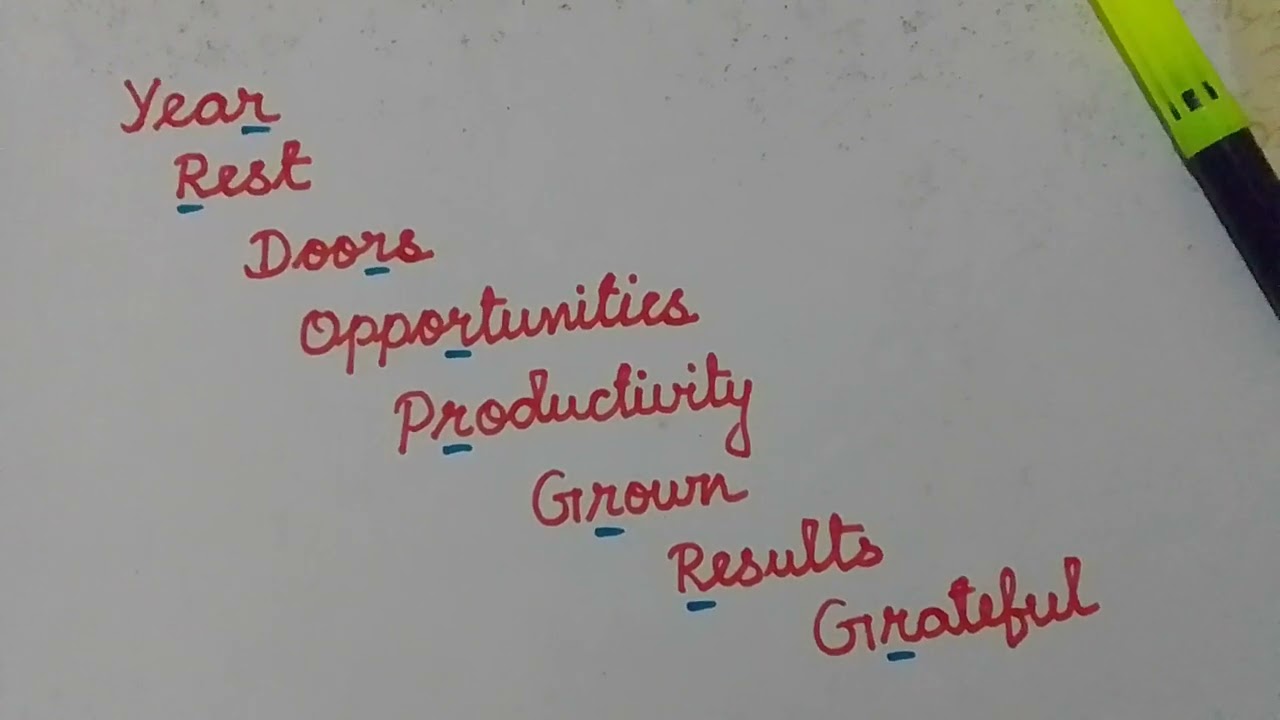 Year
Rest
Doors
Opportunities
Productivity
Grown
Results
Grateful